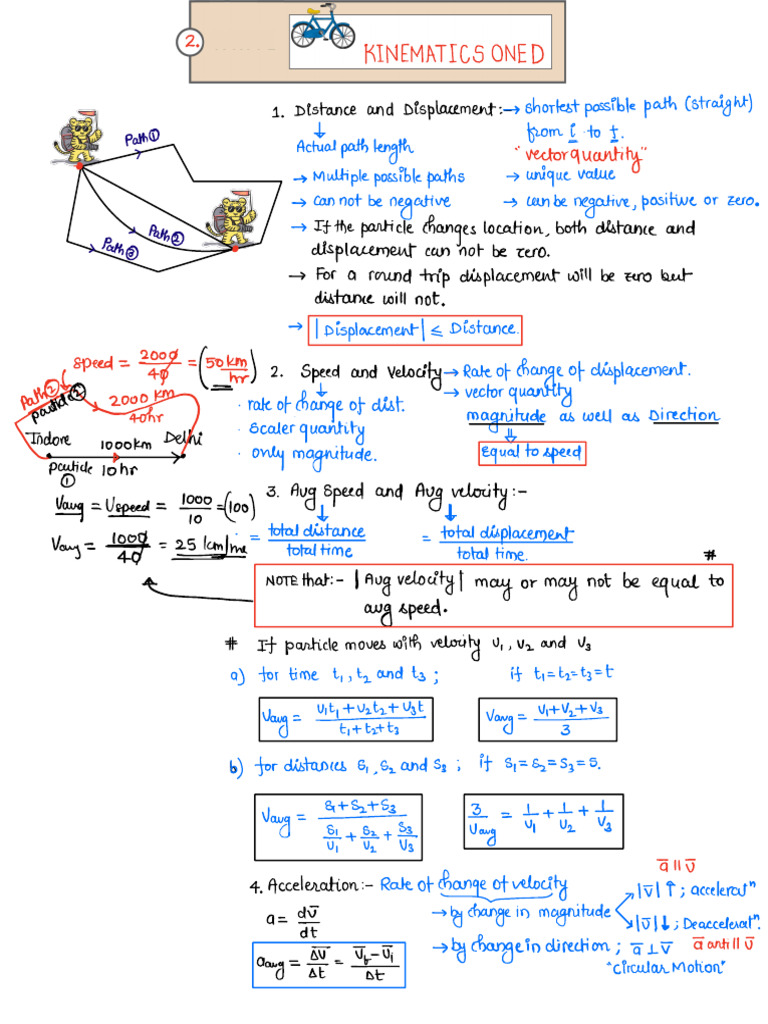 2.
KINEMATICS ONE D
1. Distance and Displacement:- → shortest possible path (straight)
from i to f.
↓
Actual path length
"vector quantity"
→ Multiple possible paths
→ unique value
→ Can not be negative
→ can be negative, positive or zero.
→ If the particle changes location, both distance and
displacement can not be zero.
→ For a round trip displacement will be zero but
distance will not.
→ |Displacement| ≤ Distance.
Path ①
Path ②
Path ③
Speed = 2000/40 = (50 km/hr)
Path ②
particle ②
2000 km
40hr
Indore
1000km
Delhi
particle ①
10 hr
Vavg = Uspeed = 1000/10 = (100)
Vavg = 1000/40 = 25 km/
2. Speed and Velocity → Rate of change of displacement.
→ vector quantity
magnitude as well as Direction
⇓
Equal to speed
↓
· rate of change of dist.
· Scaler quantity
· only magnitude.
3. Avg Speed and Avg velocity:-
= total distance/total time
= total displacement/total time.
#
NOTE that:- |Avg velocity| may or may not be equal to
avg speed.
# If particle moves with velocity v₁, v₂ and v₃
a) for time t₁, t₂ and t₃ ; if t₁=t₂=t₃=t
Vavg = (v₁t₁+v₂t₂+v₃t)/(t₁+t₂+t₃)
Vavg = (v₁+v₂+v₃)/3
b) for distances S₁, S₂ and S₃ ; if S₁=S₂=S₃=S.
Vavg = (S₁+S₂+S₃)/(S₁/v₁ + S₂/v₂ + S₃/v₃)
3/Vavg = 1/v₁ + 1/v₂ + 1/v₃
4. Acceleration:- Rate of change of velocity
a = dv̅/dt
→ by change in magnitude
a̅ || v̅
|v̅| ↑ ; acceleratⁿ
|v̅| ↓ ; Deacceleratⁿ.
a̅ anti || v̅
→ by change in direction ; a̅ ⊥ v̅
"Circular Motion"
aavg = Δv̅/Δt = (v̅f − v̅i)/Δt